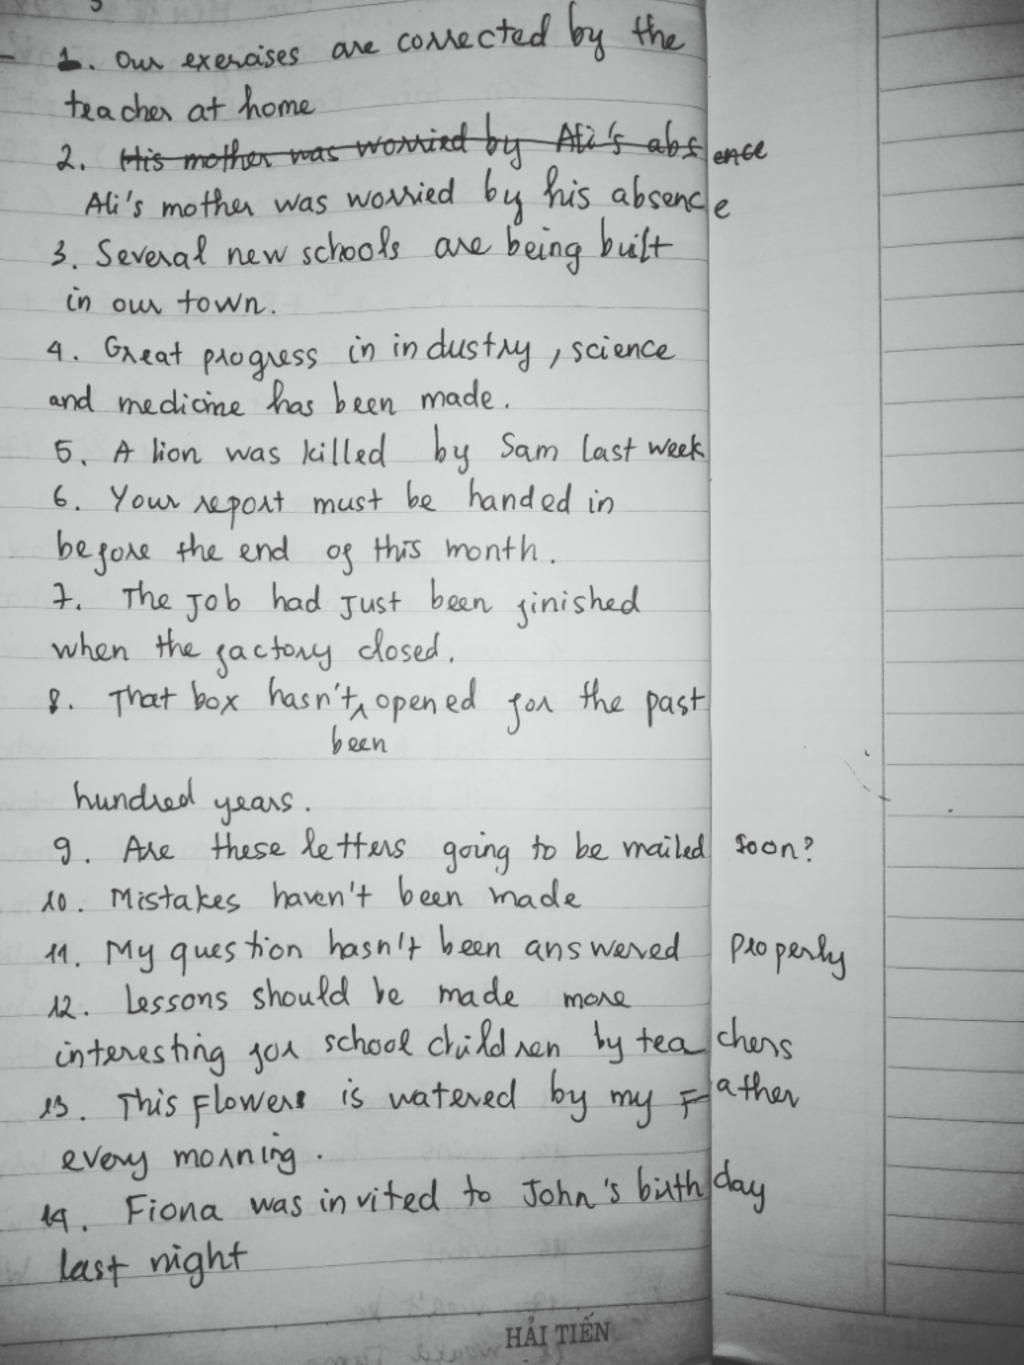 1. Our exercises are corrected by the
teacher at home
2. His mother was worried by Ali's absence
Ali's mother was worried by his absence
3. Several new schools are being built
in our town.
4. Great progress in industry, science
and medicine has been made.
5. A lion was killed by Sam last week
6. Your report must be handed in
before the end of this month.
7. The job had just been finished
when the factory closed.
8. That box hasn't opened for the past
been
hundred years.
9. Are these letters going to be mailed soon?
10. Mistakes haven't been made
11. My question hasn't been answered properly
12. Lessons should be made more
interesting for school children by teachers
13. This Flower is watered by my Father
every morning.
14. Fiona was invited to John's birthday
last night
HẢI TIẾN